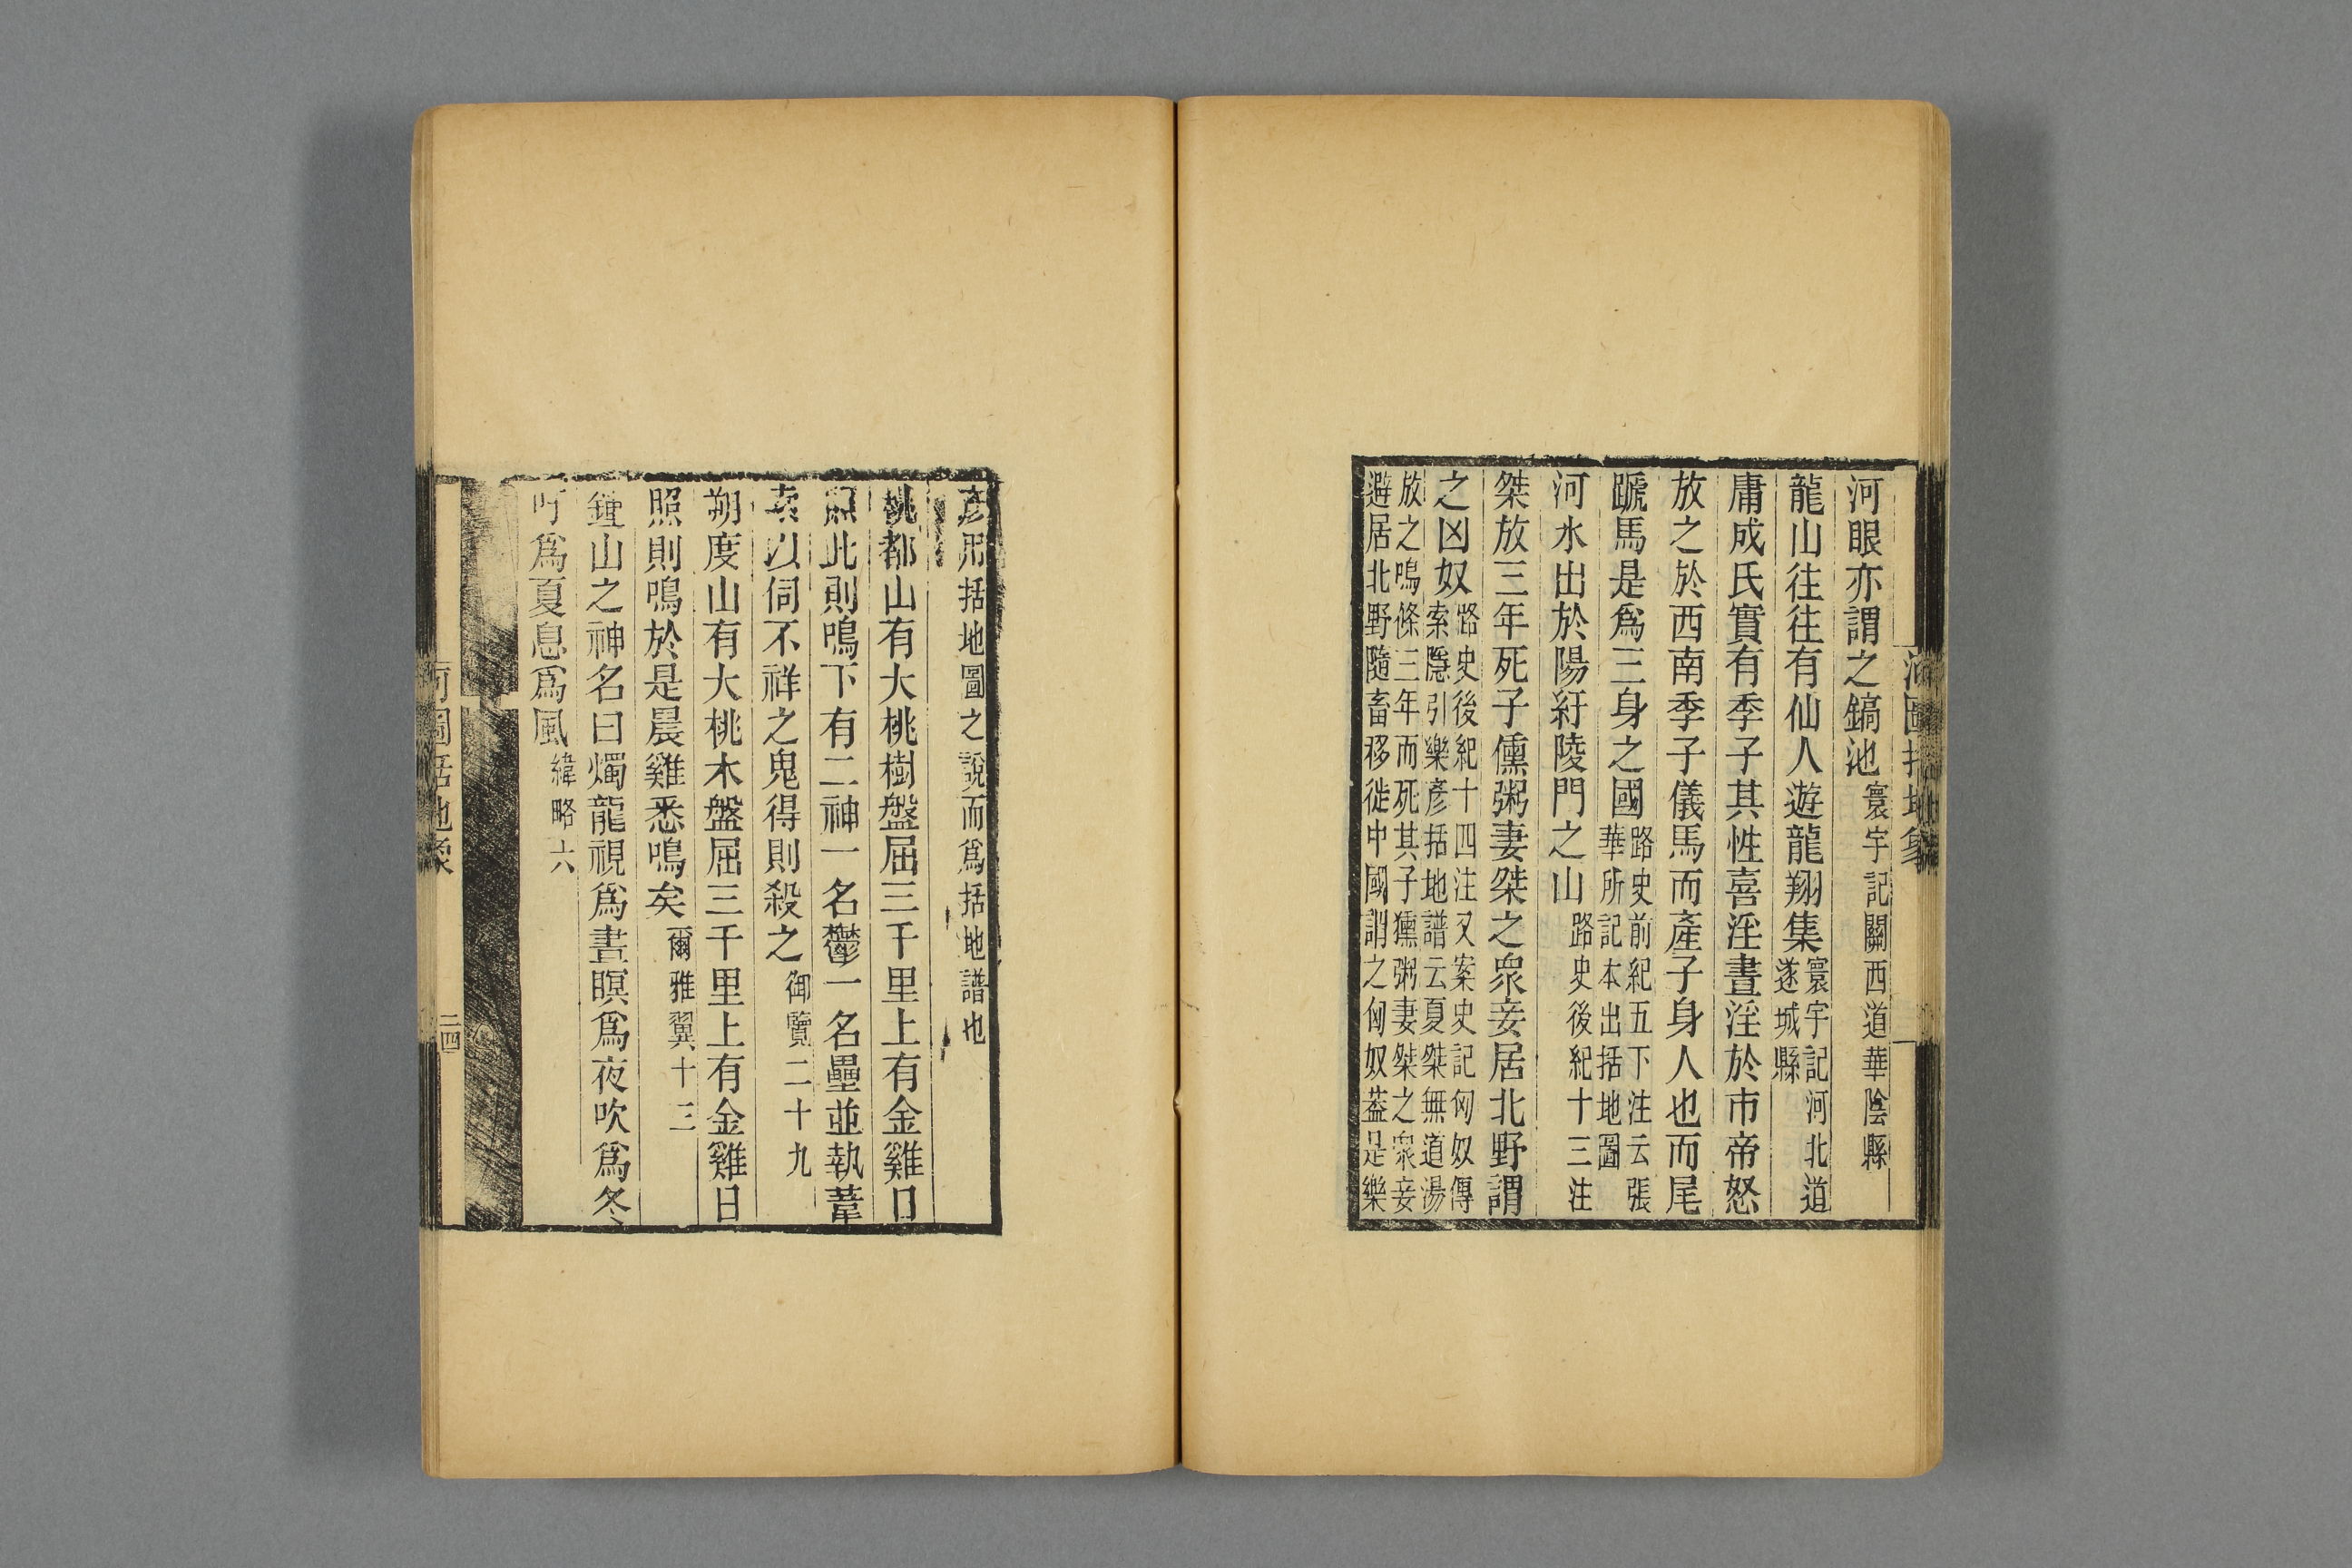 河圖括地象
河眼亦謂之鎬池寰宇記關西道華陰縣
龍山往往有仙人遊龍翔集寰宇記河北道遂城縣
庸成氏實有季子其性喜淫晝淫於市帝怒
放之於西南季子儀馬而產子身人也而尾
蹏馬是爲三身之國路史前紀五下注云張華所記本出括地圖
河水出於陽紆陵門之山路史後紀十三注
桀放三年死子儒粥妻桀之眾妾居北野謂
之凶奴路史後紀十四注又案史記匈奴傳索隱引樂彥括地譜云夏桀無道湯
放之鳴條三年而死其子獯粥妻桀之眾妾
避居北野隨畜移徙中國謂之匈奴葢是樂
彥用括地圖之說而爲括地譜也
桃都山有大桃樹盤屈三千里上有金雞日
照此則鳴下有二神一名鬱一名壘並執葦
索以伺不祥之鬼得則殺之御覽二十九
朔度山有大桃木盤屈三千里上有金雞日
照則鳴於是晨雞悉鳴矣爾雅翼十三
鍾山之神名曰燭龍視爲晝瞑爲夜吹爲冬
吁爲夏息爲風緯略六
河圖括地象
二四